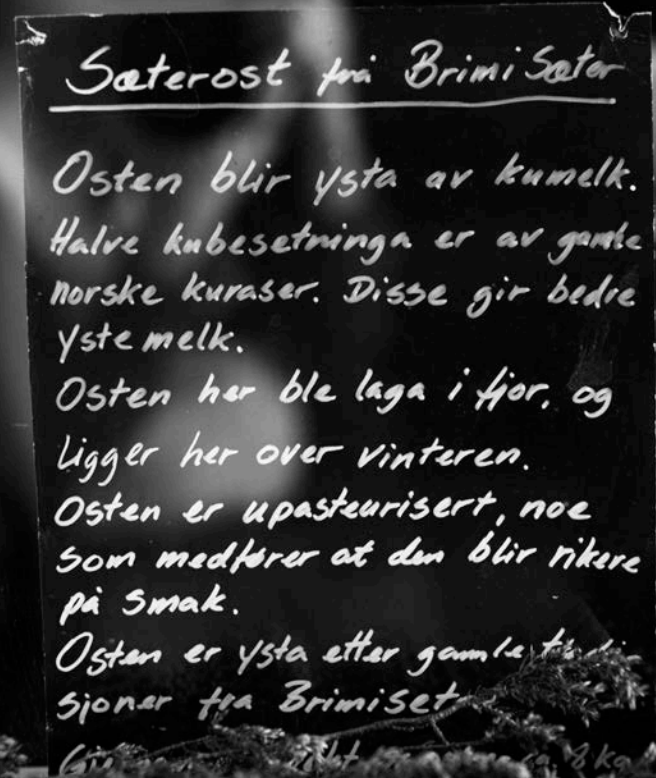 Sæterost frå Brimi Sæter
Osten blir ysta av kumelk.
Halve kubesetninga er av gamle
norske kuraser. Disse gir bedre
yste melk.
Osten her ble laga i fjor, og
ligger her over vinteren.
Osten er upasteurisert, noe
som medfører at den blir rikere
på smak.
Osten er ysta etter gamle
sjoner fra Brimi
ca. 8 kg